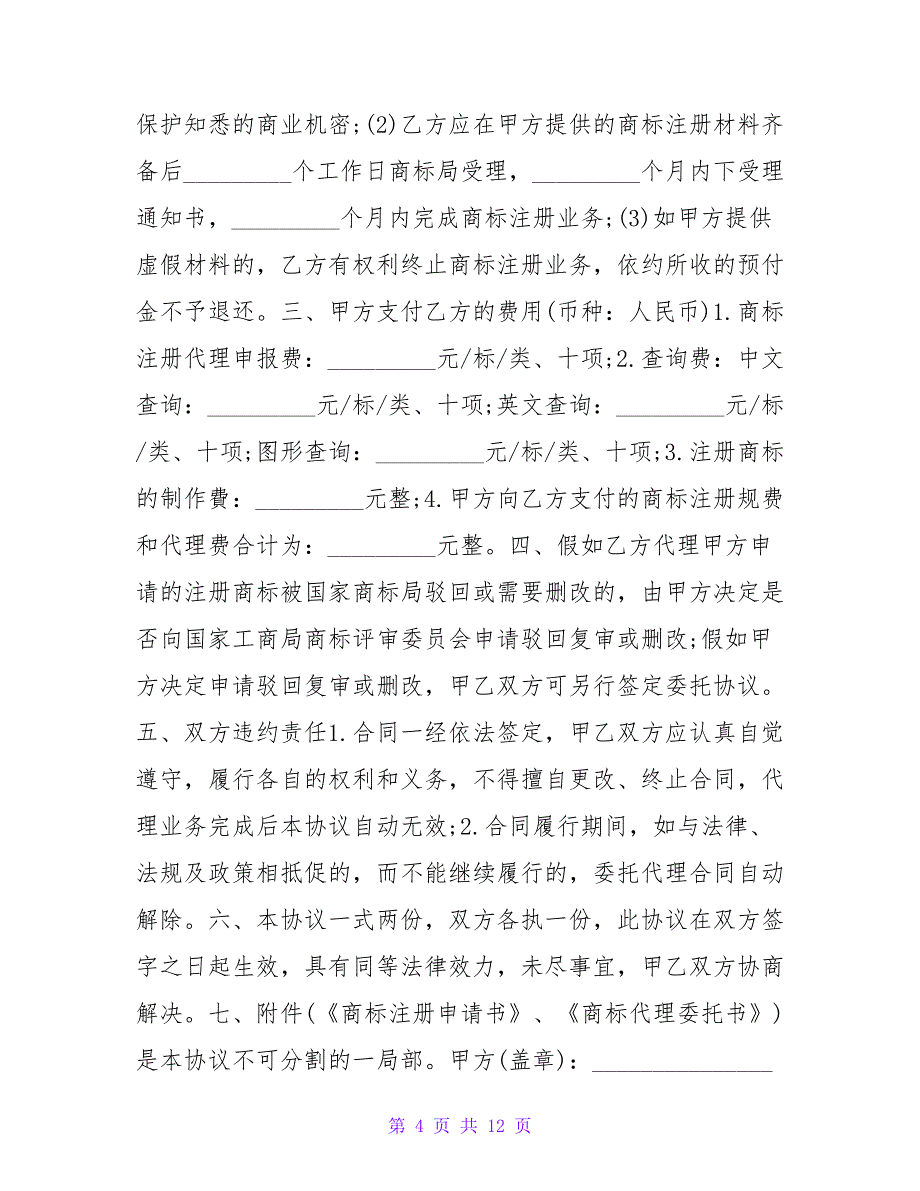 保护知悉的商业机密;(2)乙方应在甲方提供的商标注册材料齐
备后_________个工作日商标局受理，_________个月内下受理
通知书，_________个月内完成商标注册业务;(3)如甲方提供
虚假材料的，乙方有权利终止商标注册业务，依约所收的预付
金不予退还。三、甲方支付乙方的费用(币种：人民币)1.商标
注册代理申报费：_________元/标/类、十项;2.查询费：中文
查询：_________元/标/类、十项;英文查询：_________元/标
/类、十项;图形查询：_________元/标/类、十项;3.注册商标
的制作費：_________元整;4.甲方向乙方支付的商标注册规费
和代理费合计为：_________元整。四、假如乙方代理甲方申
请的注册商标被国家商标局驳回或需要删改的，由甲方决定是
否向国家工商局商标评审委员会申请驳回复审或删改;假如甲
方决定申请驳回复审或删改，甲乙双方可另行签定委托协议。
五、双方违约责任1.合同一经依法签定，甲乙双方应认真自觉
遵守，履行各自的权利和义务，不得擅自更改、终止合同，代
理业务完成后本协议自动无效;2.合同履行期间，如与法律、
法规及政策相抵促的，而不能继续履行的，委托代理合同自动
解除。六、本协议一式两份，双方各执一份，此协议在双方签
字之日起生效，具有同等法律效力，未尽事宜，甲乙双方协商
解决。七、附件(《商标注册申请书》、《商标代理委托书》)
是本协议不可分割的一局部。甲方(盖章)：_______________
第 4 页 共 12 页